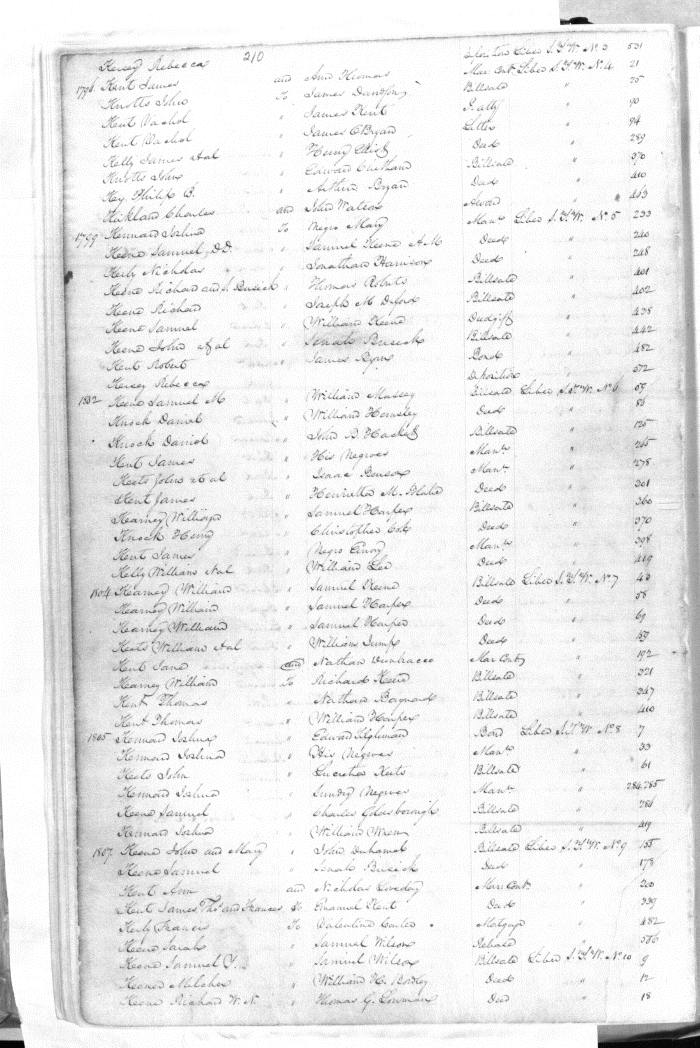 210
Kersey Rebecca Deposition Liber S.T.W. No 3 531
1796 Kent James and Ann Thomas Mar. Cont. Liber S.T.W. No 4 21
Knotts John To James Dawson Billsale " 75
Kent Vachel " James Kent " 90
Kent Vachel " James O Bryan Letter " 94
Kelly James & al " Henry Deed " 289
Knotts John " Edward Chetham Billsale " 370
Key Philip B. " Arthur Bryan Deed " 410
Kirkland Charles and John Watson Award " 413
1799 Kennard Joshua To Negro Mary Mann Liber S.T.W. No 5 233
Keene Samuel D.D. " Samuel Keene Deed " 240
Kerly Nicholas " Jonathan Harrison Deed " 248
Keene Richard and Busick " Thomas Roberts Billsale " 401
Keene Richard " Joseph M Billsale " 402
Keene Samuel " William Keene Deedgift " 438
Keene John & al " Busick Billsale " 442
Kent Robert " James Bond " 482
Kersey Rebecca Deposition " 572
1802 Keene Samuel M " William Massey Billsale Liber S.T.W. No 6 59
Knock Daniel " William Hemsley Deed " 86
Knock Daniel " John B. Hackett Billsale " 125
Kent James " His Negroes Mann " 265
Keets John & al " Isaac Benson Mann " 278
Kent James " Henrietta M. Blake Deed " 301
Kearney William " Samuel Harper Billsale " 360
Knock Henry " Christopher Cox Deed " 370
Kent James " Negro Mann " 398
Kelly William & al " William Lee Deed " 419
1804 Kearney William " Samuel Keene Billsale Liber S.T.W. No 7 43
Kearney William " Samuel Harper Deed " 58
Kearney William " Samuel Harper Deed " 69
Keets William & al " William Jump Deed " 157
Kent Jane and Nathan Dunhacco Mar. Cont. " 192
Kearney William To Richard Keene Billsale " 321
Kent Thomas " Nathan Baynard Billsale " 347
Kent Thomas " William Harper Billsale " 410
1805 Kennard Joshua " Edward Tilghman Bond Liber S.T.W. No 8 7
Kennard Joshua " His Negroes Mann " 33
Keets John " Lucretia Keets Billsale " 61
Kennard Joshua " Sundry Negroes Mann " 284.285
Keene Samuel " Charles Goldsborough Billsale " 286
Kennard Joshua " William Wrenn Billsale " 419
1807 Keene John and Mary " John Duhamel Billsale Liber S.T.W. No 9 155
Keene Samuel " Busick Deed " 178
Kent Ann and Nicholas Loveday Mar. Cont. " 200
Kent James Thos and Frances To Emanuel Kent Deed " 339
Kerly Frances To Valentine Carter Mortgage " 482
Keene Sarah " Samuel Wilson Release " 586
Keene Samuel Y. " Samuel Wilson Billsale Liber S.T.W. No 10 9
Keener Melcher " William H. Bordley Deed " 12
Keene Richard W. N. " Thomas G. Cowman Deed " 18